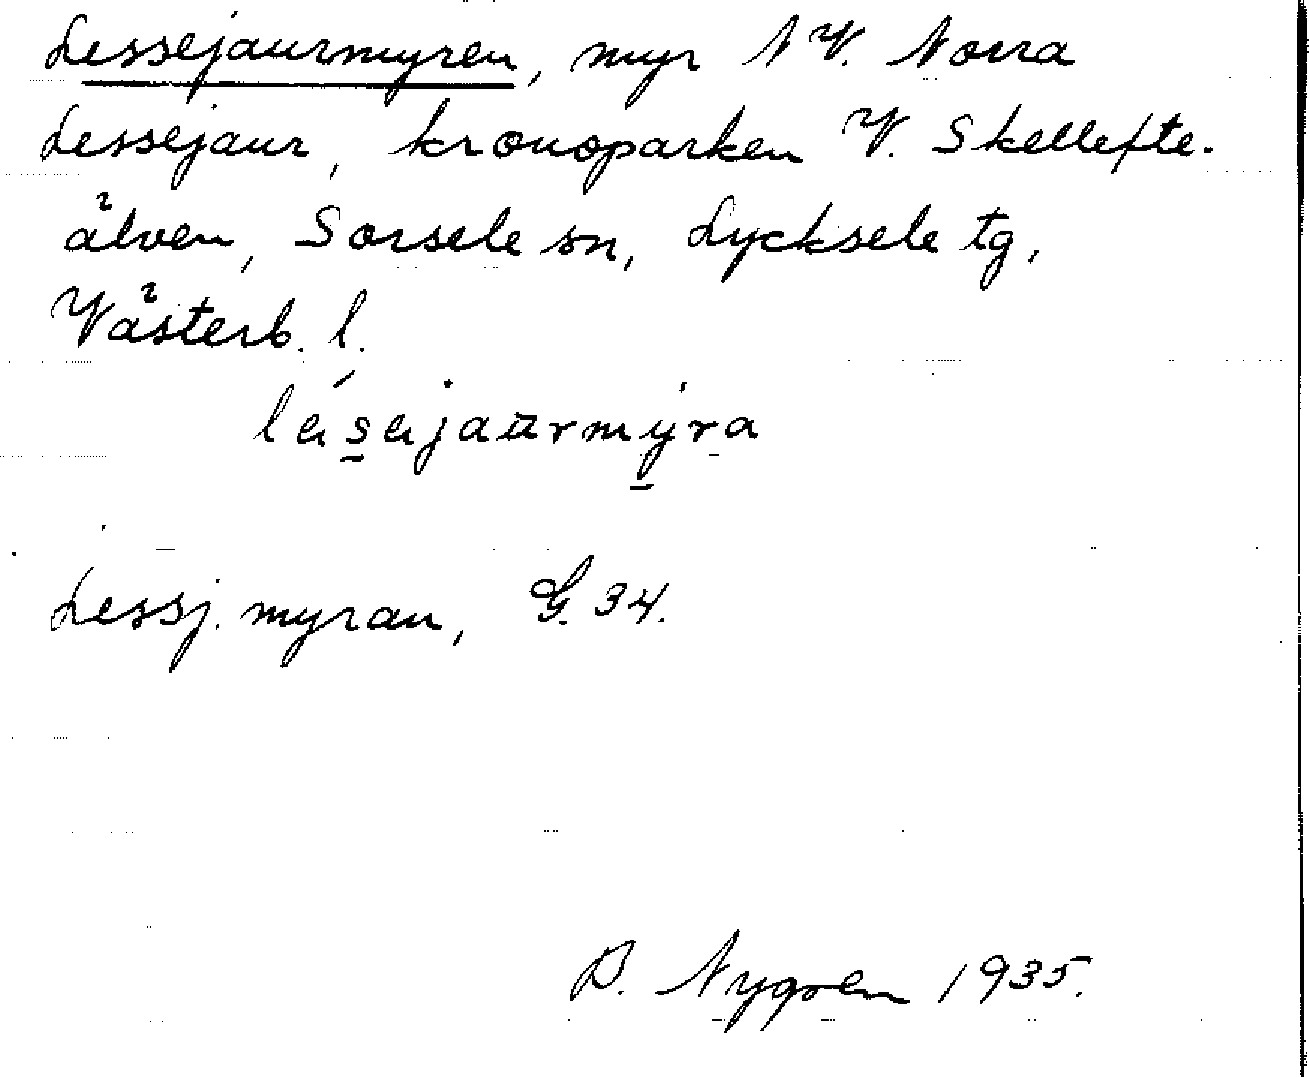 Lessejaurmyren, myr NV. Norra
Lessejaur, kronoparken V. Skellefte-
älven, Sorsele sn, Lycksele tg,
Västerb. l.
Lessj. myran, G. 34.
Nygren 1935.